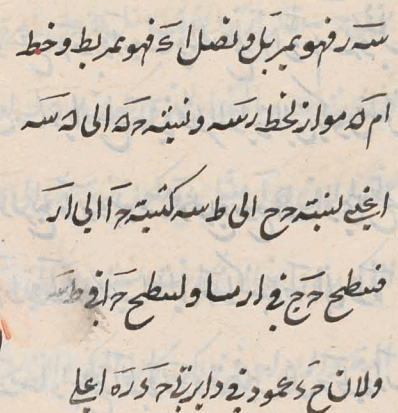 سه ر فهو يمر بل و نصل ا ء فهو يمر بط و خط
ا م ه مواز لخط ر سه و نسبة ح ه الى ه سه
اعنى نسبة ح ح الى ط سه كنسبة ح ا الى ا ر
فسطح ح ج في ا ر مساو لسطح ح ا في ط سه
ولان ح ء عمود في دايرتي ح ء ر ه اعلى